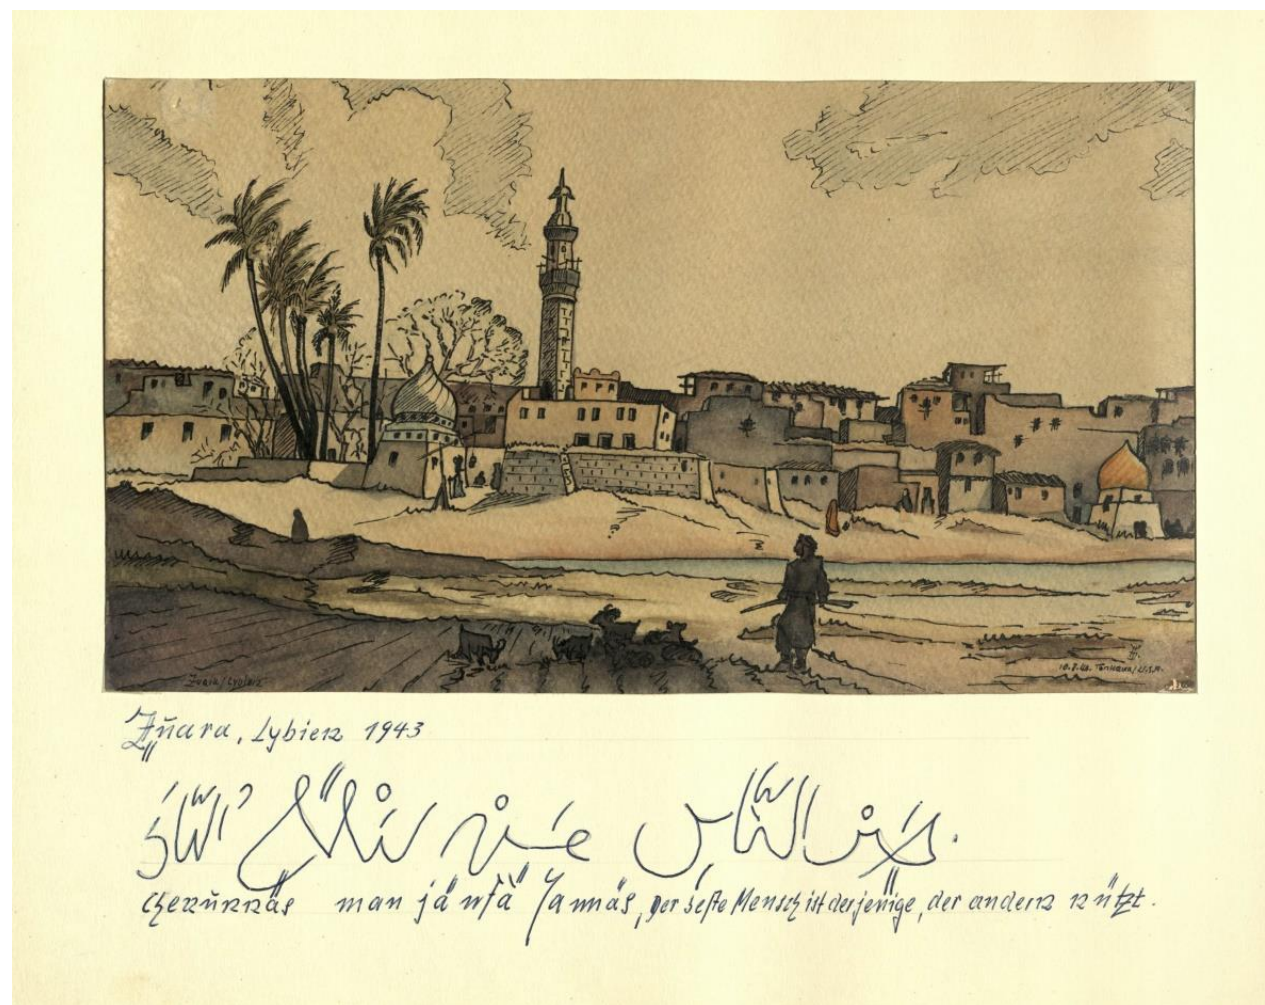 Zuara/Lybien
Tonkawa/U.S.A.
Zŭara, Lybien 1943
خَيْرُ النَّاسِ مَنْ يَنْفَعُ النَّاسَ
cherŭnnäs man jänfä annäs, der beste Mensch ist derjenige, der andern nützt.